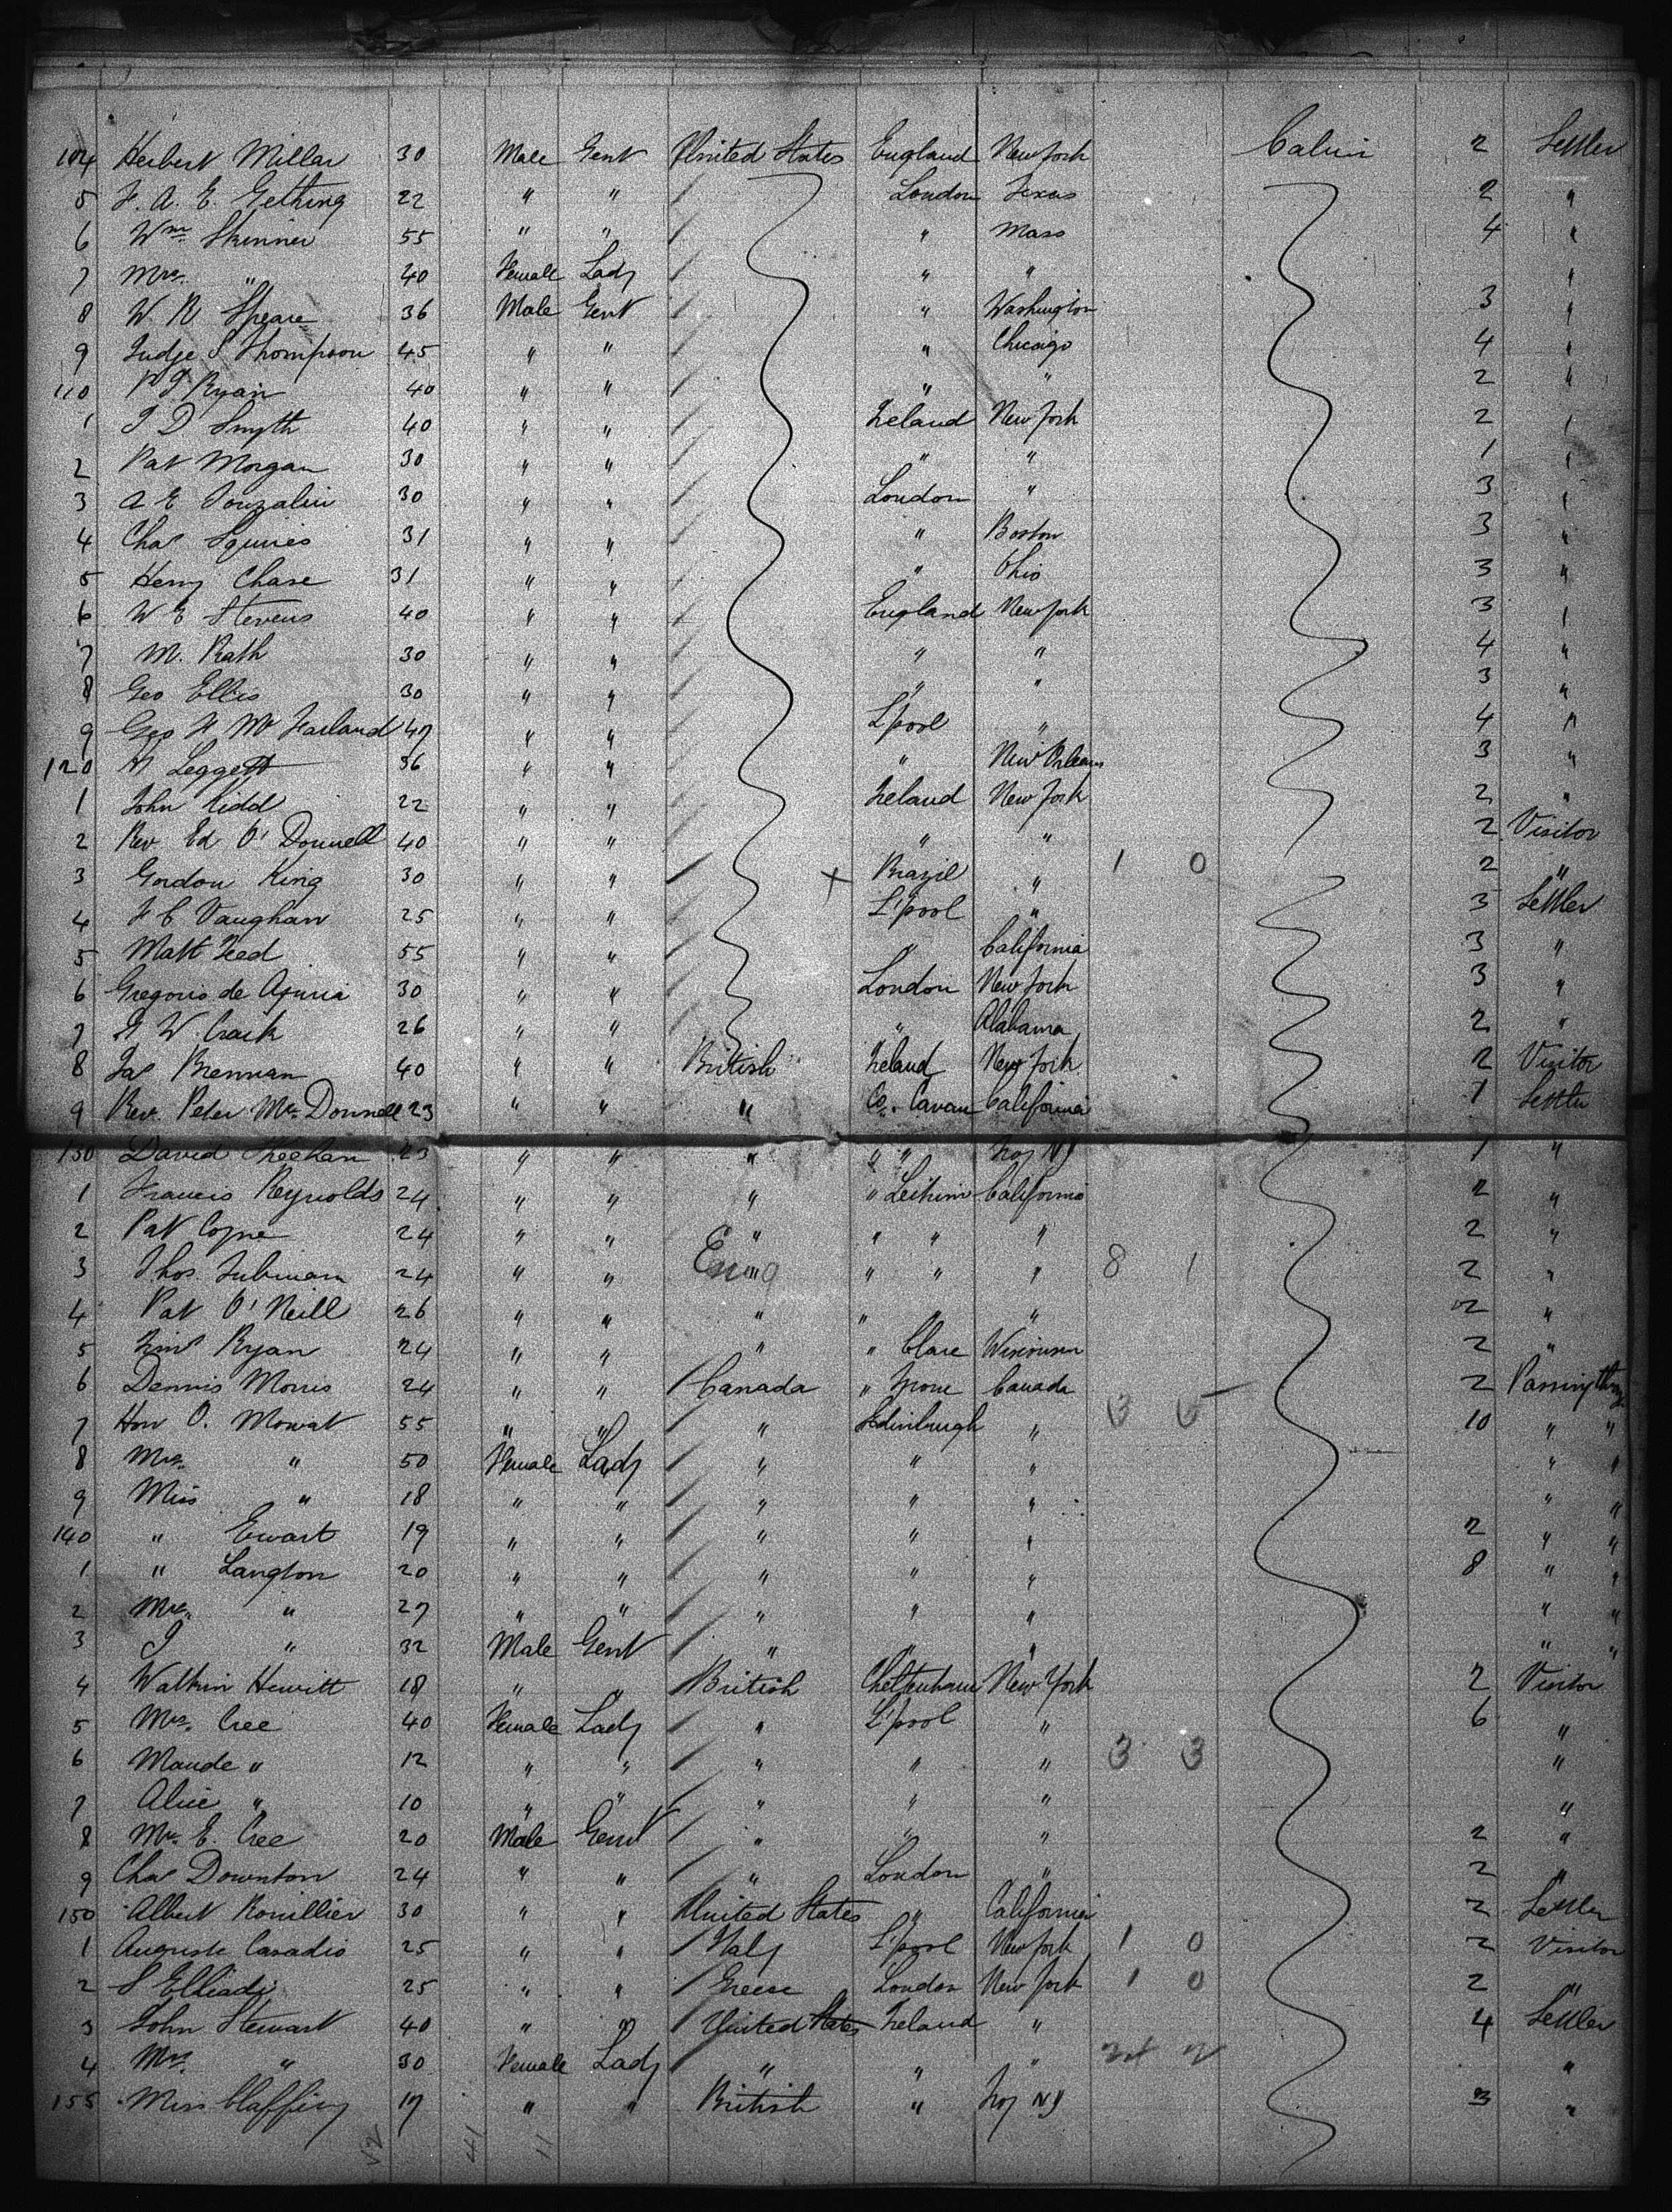 104 Herbert Millar 30 Male Gent United States England New York Cabin 2 Settler
5 F. A. E. Gething 22 " " London Texas 2 "
6 Wm Skinner 55 " " " Mass 4 "
7 Mrs " 40 Female Lady " " "
8 W R Speare 36 Male Gent " Washington 3 "
9 Judge S Thompson 45 " " " Chicago 4 "
110 P J Ryan 40 " " " " 2 "
1 J D Smyth 40 " " Ireland New York 2 "
2 Pat Morgan 30 " " " " 1 "
3 A E 30 " " London " 3 "
4 Chas Squires 31 " " " Boston 3 "
5 Henry Chase 31 " " " Ohio 3 "
6 W E Stevens 40 " " England New York 3 "
7 M. Rath 30 " " " " 4 "
8 Geo Ellis 30 " " " " 3 "
9 Geo F McFarland 47 " " L'pool " 4 "
120 H Leggett 36 " " " New Orleans 3 "
1 John Kidd 22 " " Ireland New York 2 "
2 Rev Ed O'Donnell 40 " " " " 2 Visitor
3 Gordon King 30 " " x Brazil " 1 0 2 "
4 F C Vaughan 25 " " L'pool " 3 Settler
5 Matt 55 " " " California 3 "
6 Gregorio de Ajuria 30 " " London New York 3 "
7 G W. Craik 26 " " " Alabama 2 "
8 Jas Brennan 40 " " British Ireland New York 2 Visitor
9 Rev. Peter McDonnell 23 " " " Co. Cavan California 1 Settler
130 David Sheehan 23 " " " " " Troy NY 1 "
1 Francis Reynolds 24 " " " " Leitrim California 2 "
2 Pat Coyne 24 " " " " " " 2 "
3 Thos. 24 " " Eng " " " " 8 1 2 "
4 Pat O'Neill 26 " " " " " " 2 "
5 Ryan 24 " " " " Clare Wisconsin 2 "
6 Dennis Morris 24 " " Canada " Tyrone Canada 2 Passing thro
7 Hon O. Mowat 55 " " " Edinburgh " 10 " "
8 Mrs " 50 Female Lady " " " " "
9 Miss " 18 " " " " " " "
140 " Ewart 19 " " " " " 2 " "
1 " Langton 20 " " " " " 8 " "
2 Mrs " 27 " " " " " " "
3 J " 32 Male Gent " " " " "
4 Watkin Hewitt 18 " " British Cheltenham New York 2 Visitor
5 Mrs Cree 40 Female Lady " L'pool " 6 "
6 Maude " 12 " " " " " 3 3 "
7 Alice " 10 " " " " " "
8 Mr. E. Cree 20 Male Gent " " " 2 "
9 Chas Downton 24 " " " London " 2 "
150 Albert Rouillier 30 " " United States " California 2 Settler
1 Auguste Casadio 25 " " Italy L'pool New York 1 0 2 Visitor
2 S Elliadi 25 " " Greece London New York 1 0 2 "
3 John Stewart 40 " " United States Ireland " 4 Settler
4 Mrs " 30 Female Lady " " " "
155 Miss Claffing 19 " " British " Troy NY 3 "
41 11